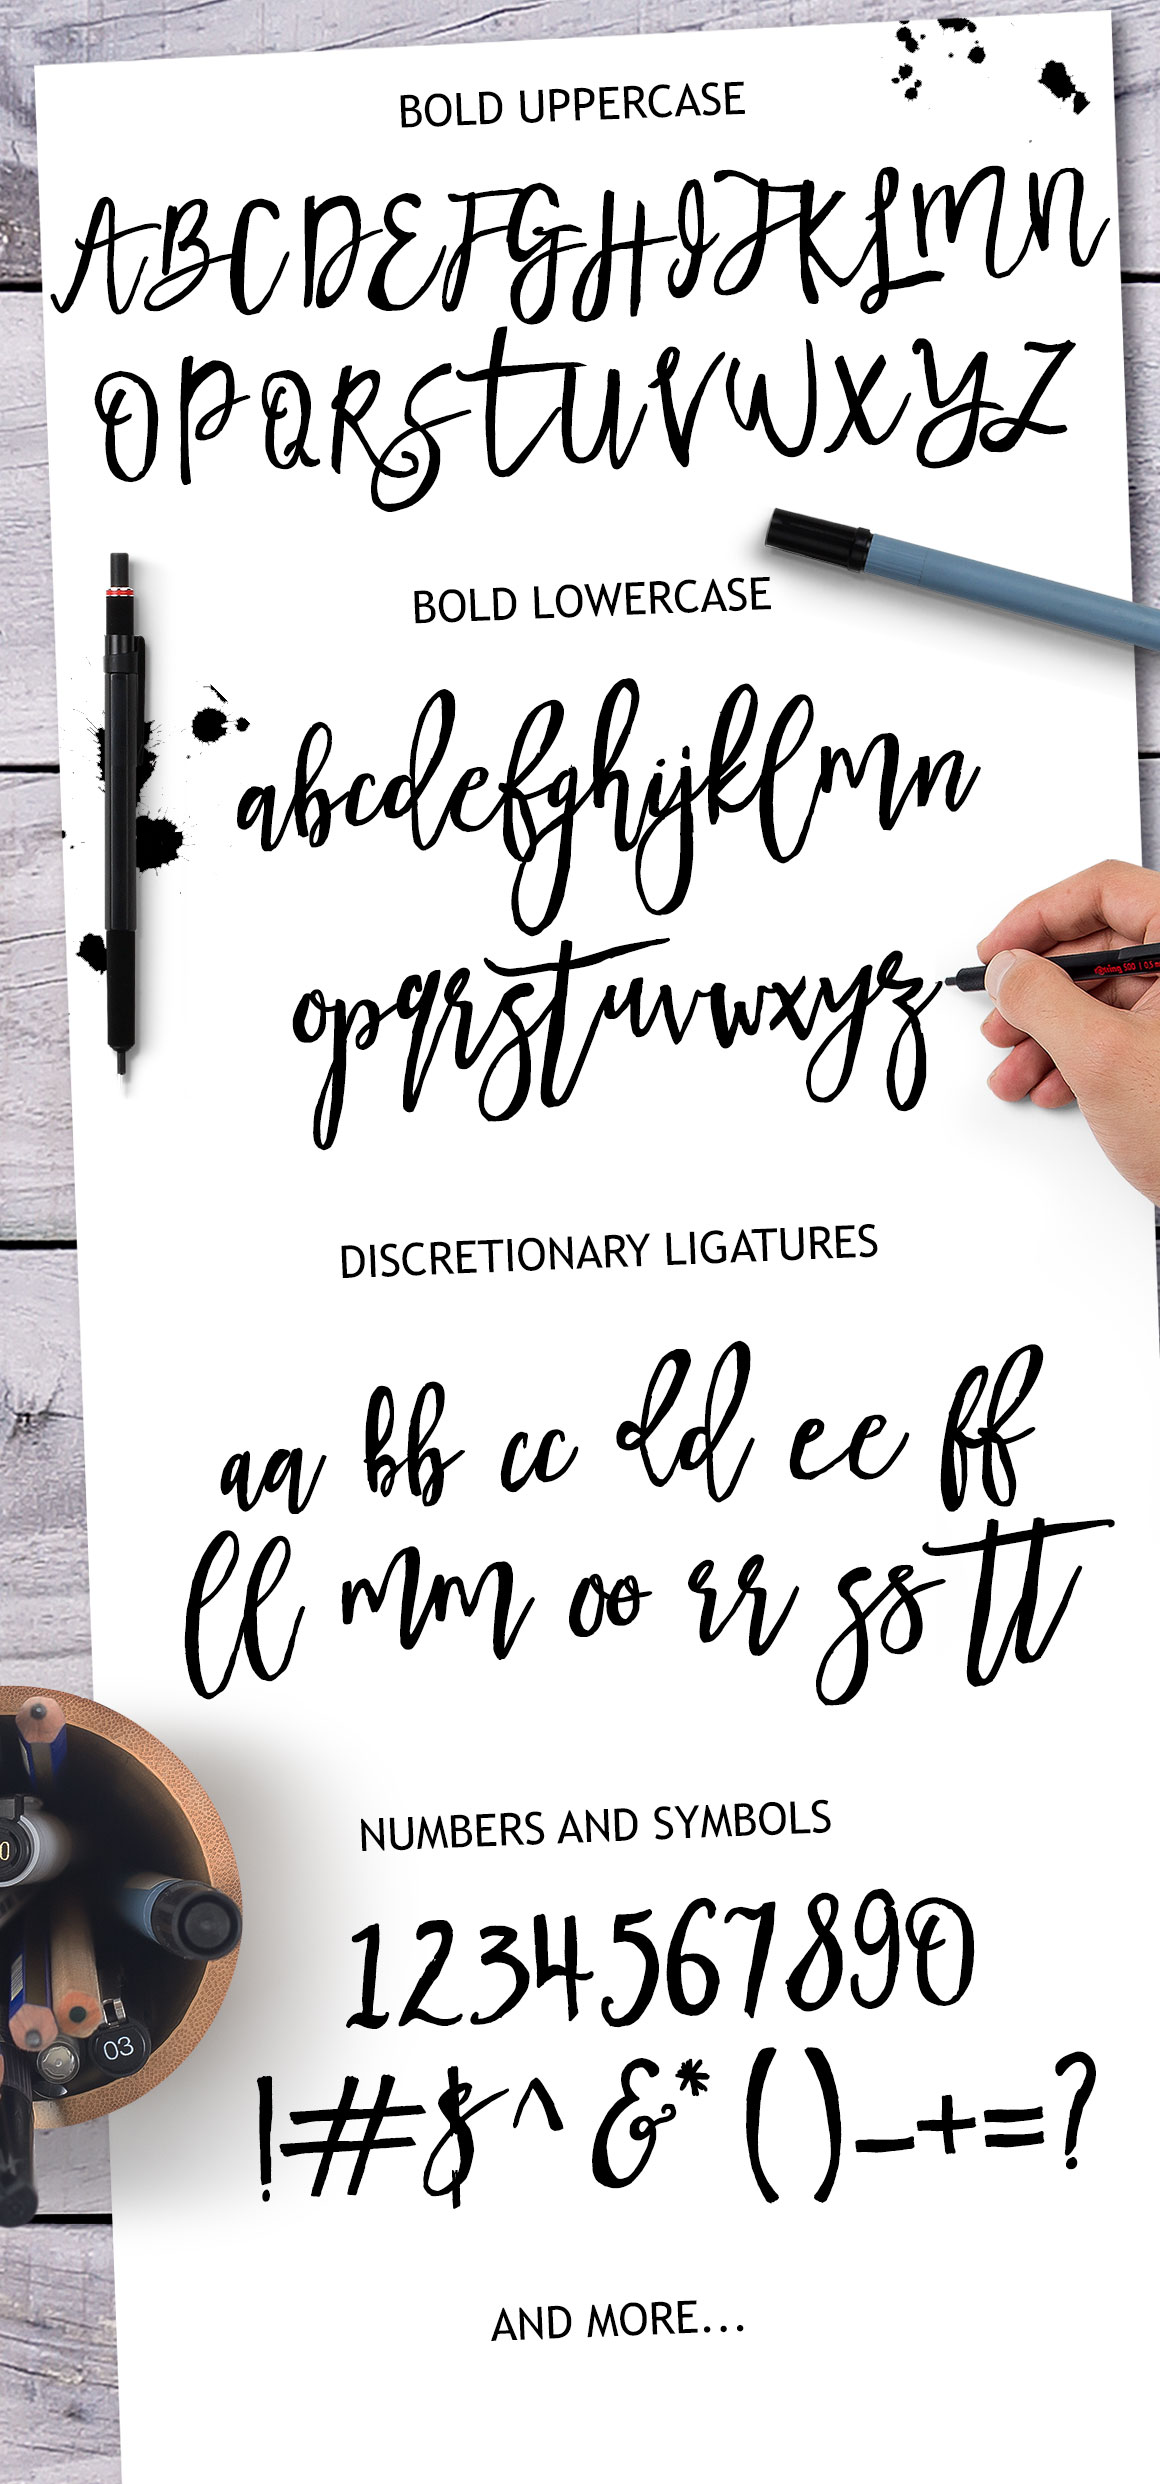 BOLD UPPERCASE
ABCDEFGHIJKLMN
OPQRSTUVWXYZ
BOLD LOWERCASE
abcdefghijklmn
opqrstuvwxyz
rotring 500 | 0,5 m
DISCRETIONARY LIGATURES
aa bb cc dd ee ff
ll mm oo rr ss tt
NUMBERS AND SYMBOLS
1234567890
03
!#$^&*()_+=?
AND MORE...